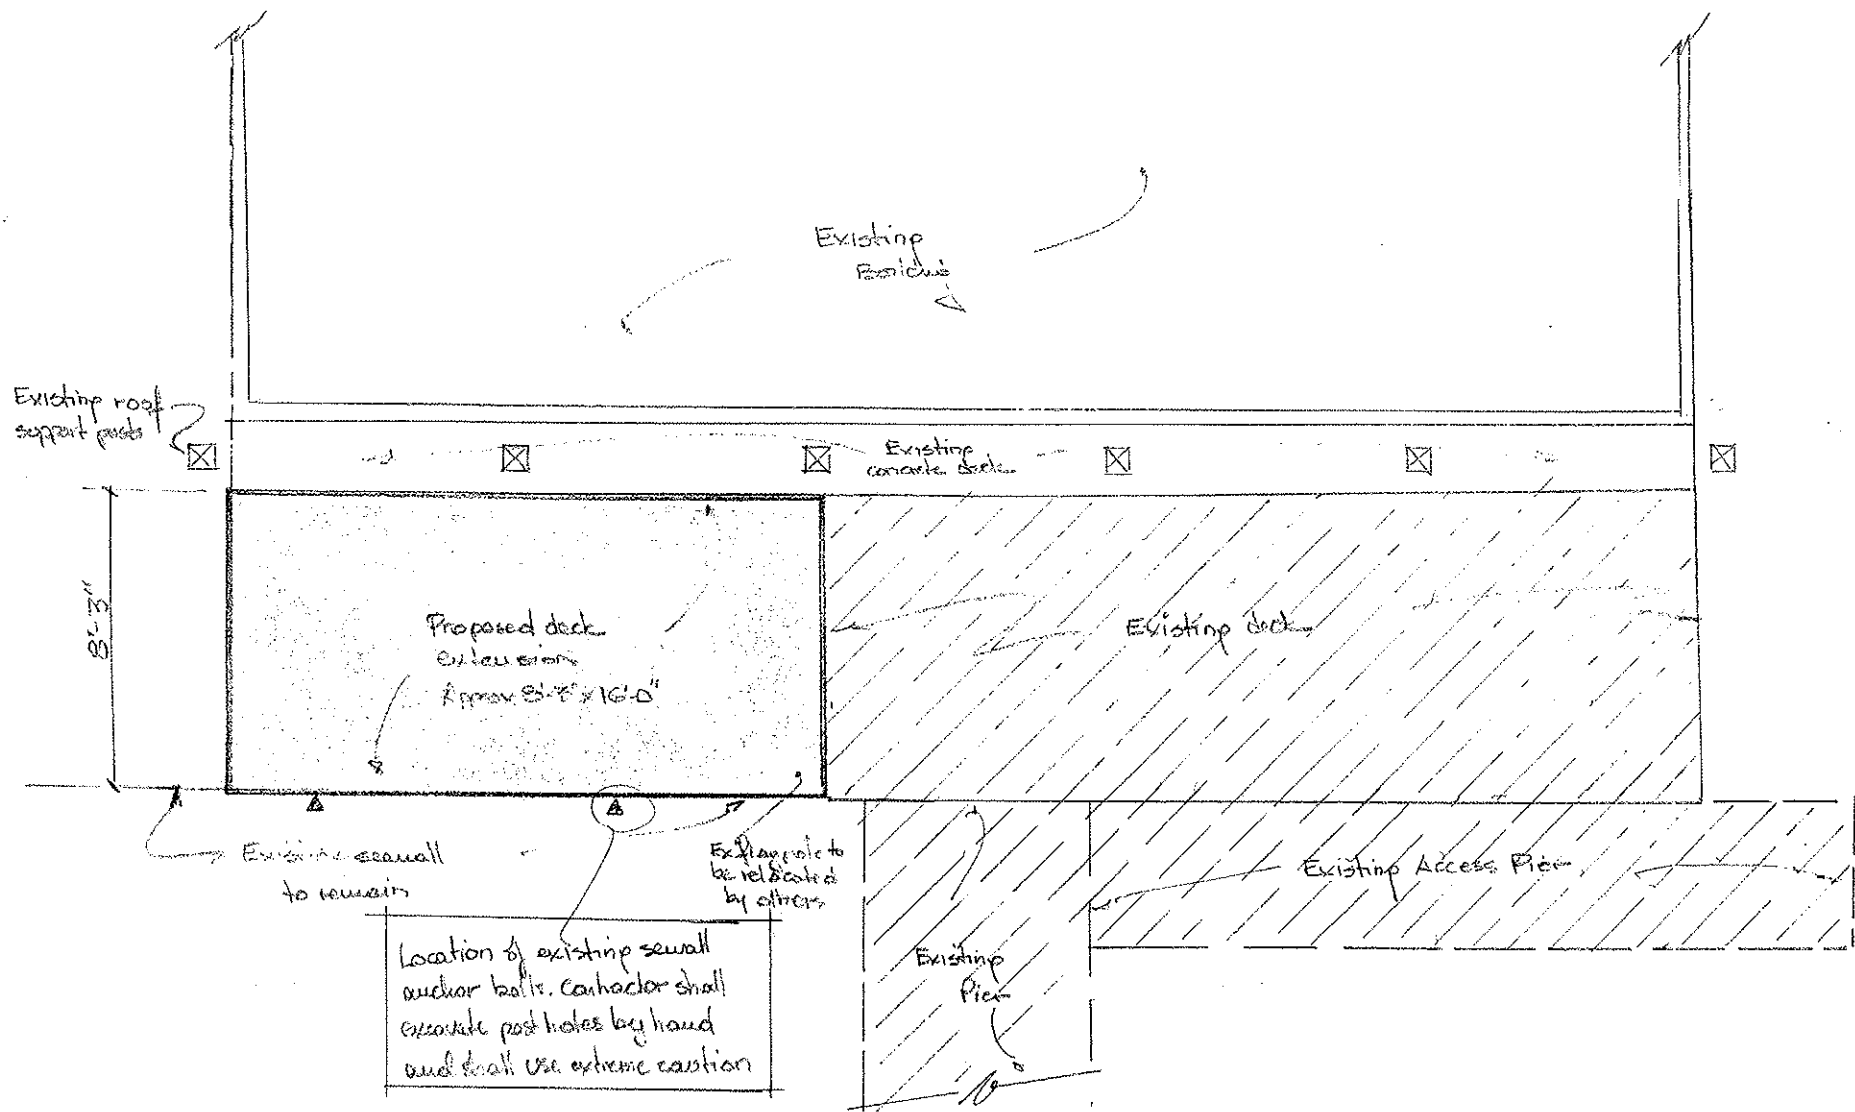 Existing
Existing roof
support posts
Existing
concrete deck
8'-3"
Proposed deck
extension
Approx 8'-3" x 16'-0"
Existing deck
Existing seawall
to remain
Ex flagpole to
be relocated
by others
Existing Access Pier
Existing
Pier
Location of existing sewall
anchor bolts. Contractor shall
excavate post holes by hand
and shall use extreme caution